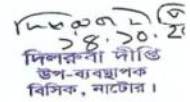 ১৪.১০.
দিলরুবা দীপ্তি
উপ-ব্যবস্থাপক
বিসিক, নাটোর।